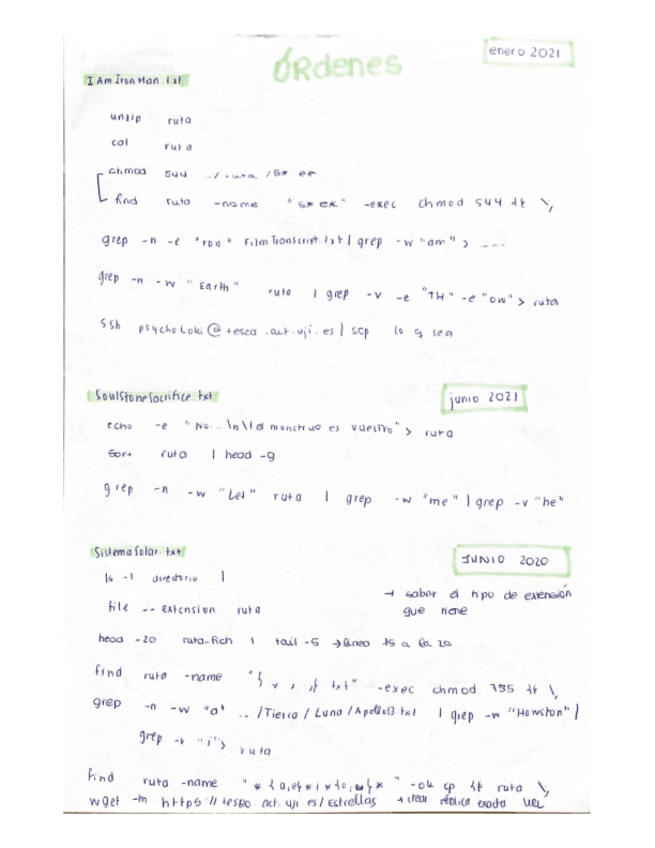 ÓRdenes
enero 2021
I Am Iron Man.txt
unzip ruta
cat ruta
chmod 544 ../ruta /s* er
find ruta -name "s* ex" -exec chmod 544 {} \;
grep -n -e "ron" FilmTranscript.txt | grep -w "am" > ----
grep -n -w "Earth" ruta | grep -v -e "TH" -e "ow" > ruta
ssh psycholoki@tesea.act.uji.es | scp lo q sea
SoulStoneSacrifice.txt
junio 2021
echo -e "No...\n\tel monstruo es vuestro" > ruta
sort ruta | head -9
grep -n -w "Let" ruta | grep -w "me" | grep -v "he"
SistemaSolar.txt
JUNIO 2020
ls -1 directorio |
file --extension ruta → saber el tipo de extensión
que tiene
head -20 ruta-fich | tail -5 → línea 15 a la 20
find ruta -name txt" -exec chmod 755 {} \;
grep -n -w "a" ../Tierra/Luna/Apollo13.txt | grep -w "Howston" |
grep -v "i" > ruta
find ruta -name -ok cp {} ruta \;
wget -m https://tespo.act.uji.es/Estrellas → crear réplica exacta